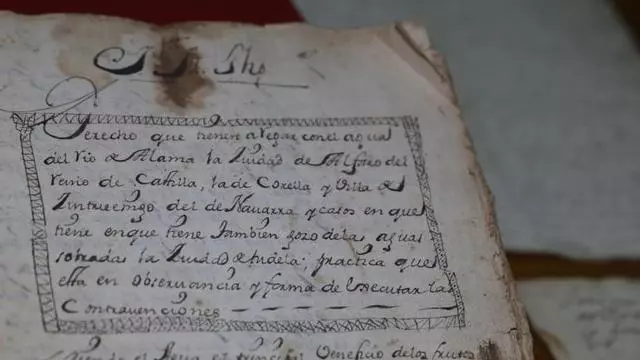 Derecho que tienen a regar con el agua
del rio de Alama la Ziudad de Alfaro del
reino de Castilla, la de Corella y Villa de
Zintruenigo del de Navarra y casos en que
tiene en que tiene tambien gozo de las aguas
sobradas la Ziudad de tudela; practica que
esta en observancia y forma de executar las
Contravenciones
el Agua es principal Beneficio de los frutos